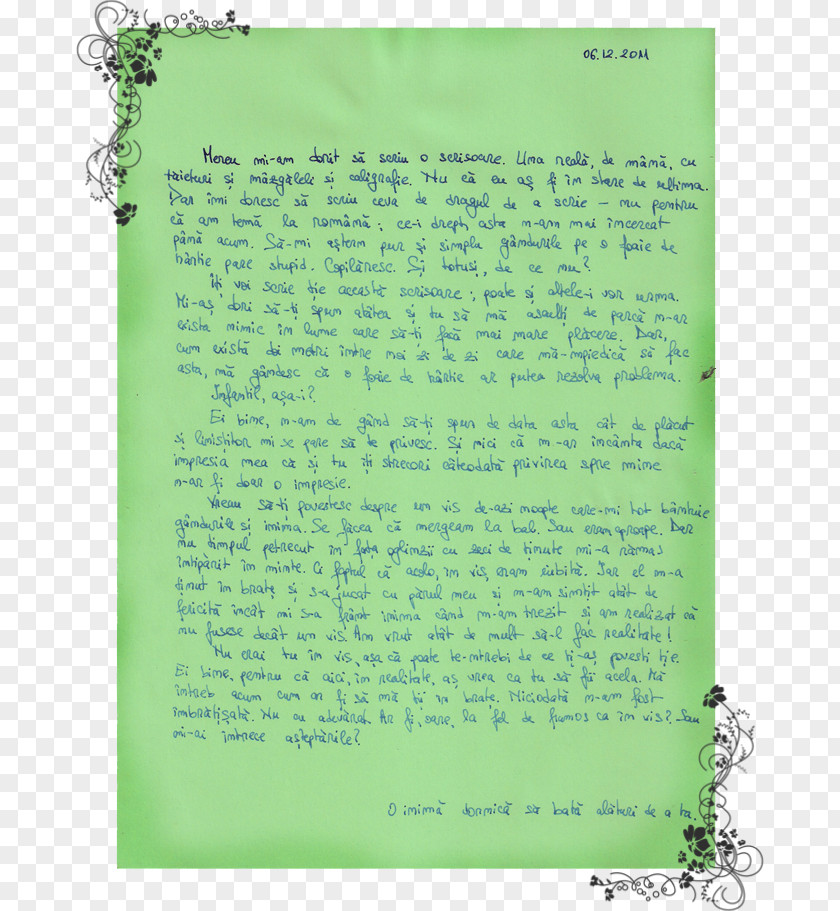 06.12.2011
Mereu mi-am dorit să scriu o scrisoare. Una reală, de mână, cu
tăieturi și mâzgăleli și caligrafie. Nu că eu aș fi în stare de ultima.
Dar îmi doresc să scriu ceva de dragul de a scrie – nu pentru
că am temă la română; ce-i drept, asta n-am mai încercat
până acum. Să-mi aștern pur și simplu gândurile pe o foaie de
hârtie pare stupid. Copilăresc. Și totuși, de ce nu?
Îți voi scrie ție această scrisoare; poate și altele-i vor urma.
Mi-aș dori să-ți spun atâtea și tu să mă asculți de parcă n-ar
exista nimic în lume care să-ți facă mai mare plăcere. Dar,
cum există doi metri între noi zi de zi care mă-mpiedică să fac
asta, mă gândesc că o foaie de hârtie ar putea rezolva problema.
Infantil, așa-i?
Ei bine, m-am de gând să-ți spun de data asta cât de plăcut
și liniștitor mi se pare să te privesc. Și nici că m-ar încânta dacă
impresia mea că și tu îți strecori câteodată privirea spre mine
n-ar fi doar o impresie.
Vreau să-ți povestesc despre un vis de-azi noapte care-mi tot bântuie
gândurile și inima. Se făcea că mergeam la bal. Sau eram aproape. Dar
nu timpul petrecut în fața oglinzii cu zeci de ținute mi-a rămas
întipărit în minte. Ci faptul că acolo, în vis, eram iubită. Iar el m-a
ținut în brațe și s-a jucat cu părul meu și m-am simțit atât de
fericită încât mi s-a frânt inima când m-am trezit și am realizat că
nu fusese decât un vis. Am vrut atât de mult să-l fac realitate!
Nu erai tu în vis, așa că poate te-ntrebi de ce ți-aș povesti ție.
Ei bine, pentru că aici, în realitate, aș vrea ca tu să fii acela. Mă
întreb acum cum ar fi să mă ții în brațe. Niciodată n-am fost
îmbrățișată. Nu cu adevărat. Ar fi, oare, la fel de frumos ca în vis? Sau
mi-ai întrece așteptările?
O inimă dornică să bată alături de a ta.